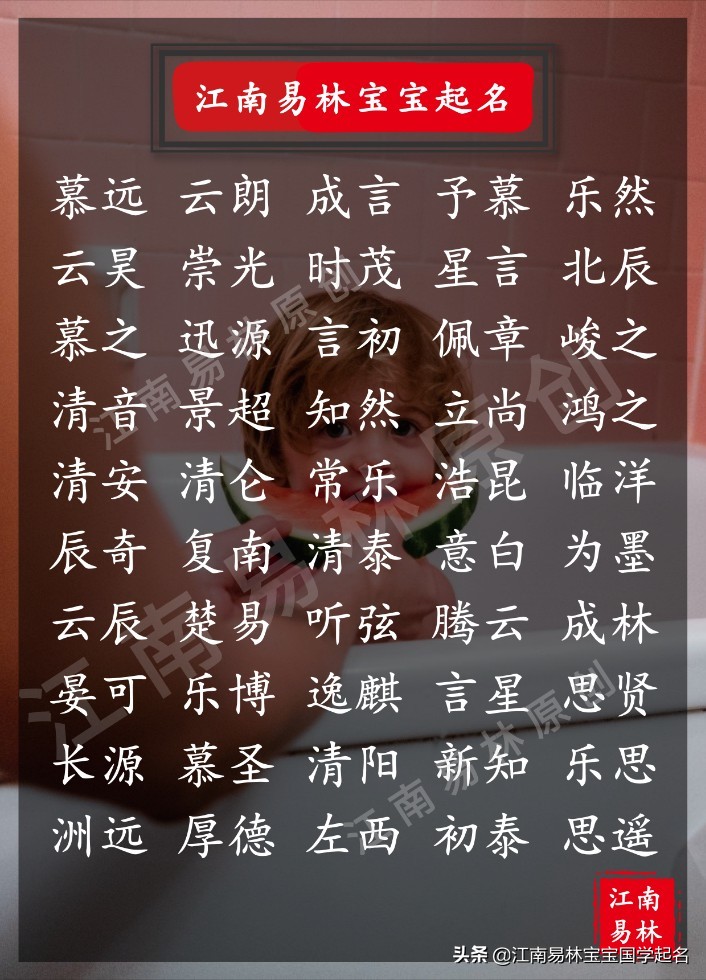 江南易林宝宝起名
慕远 云朗 成言 予慕 乐然
云昊 崇光 时茂 星言 北辰
慕之 迅源 言初 佩章 峻之
清音 景超 知然 立尚 鸿之
清安 清仑 常乐 浩昆 临洋
辰奇 复南 清泰 意白 为墨
云辰 楚易 听弦 腾云 成林
晏可 乐博 逸麒 言星 思贤
长源 慕圣 清阳 新知 乐思
洲远 厚德 左西 初泰 思遥
江南易林原创
江南易林原创
江南易林原创
江南
易林
头条 @江南易林宝宝国学起名